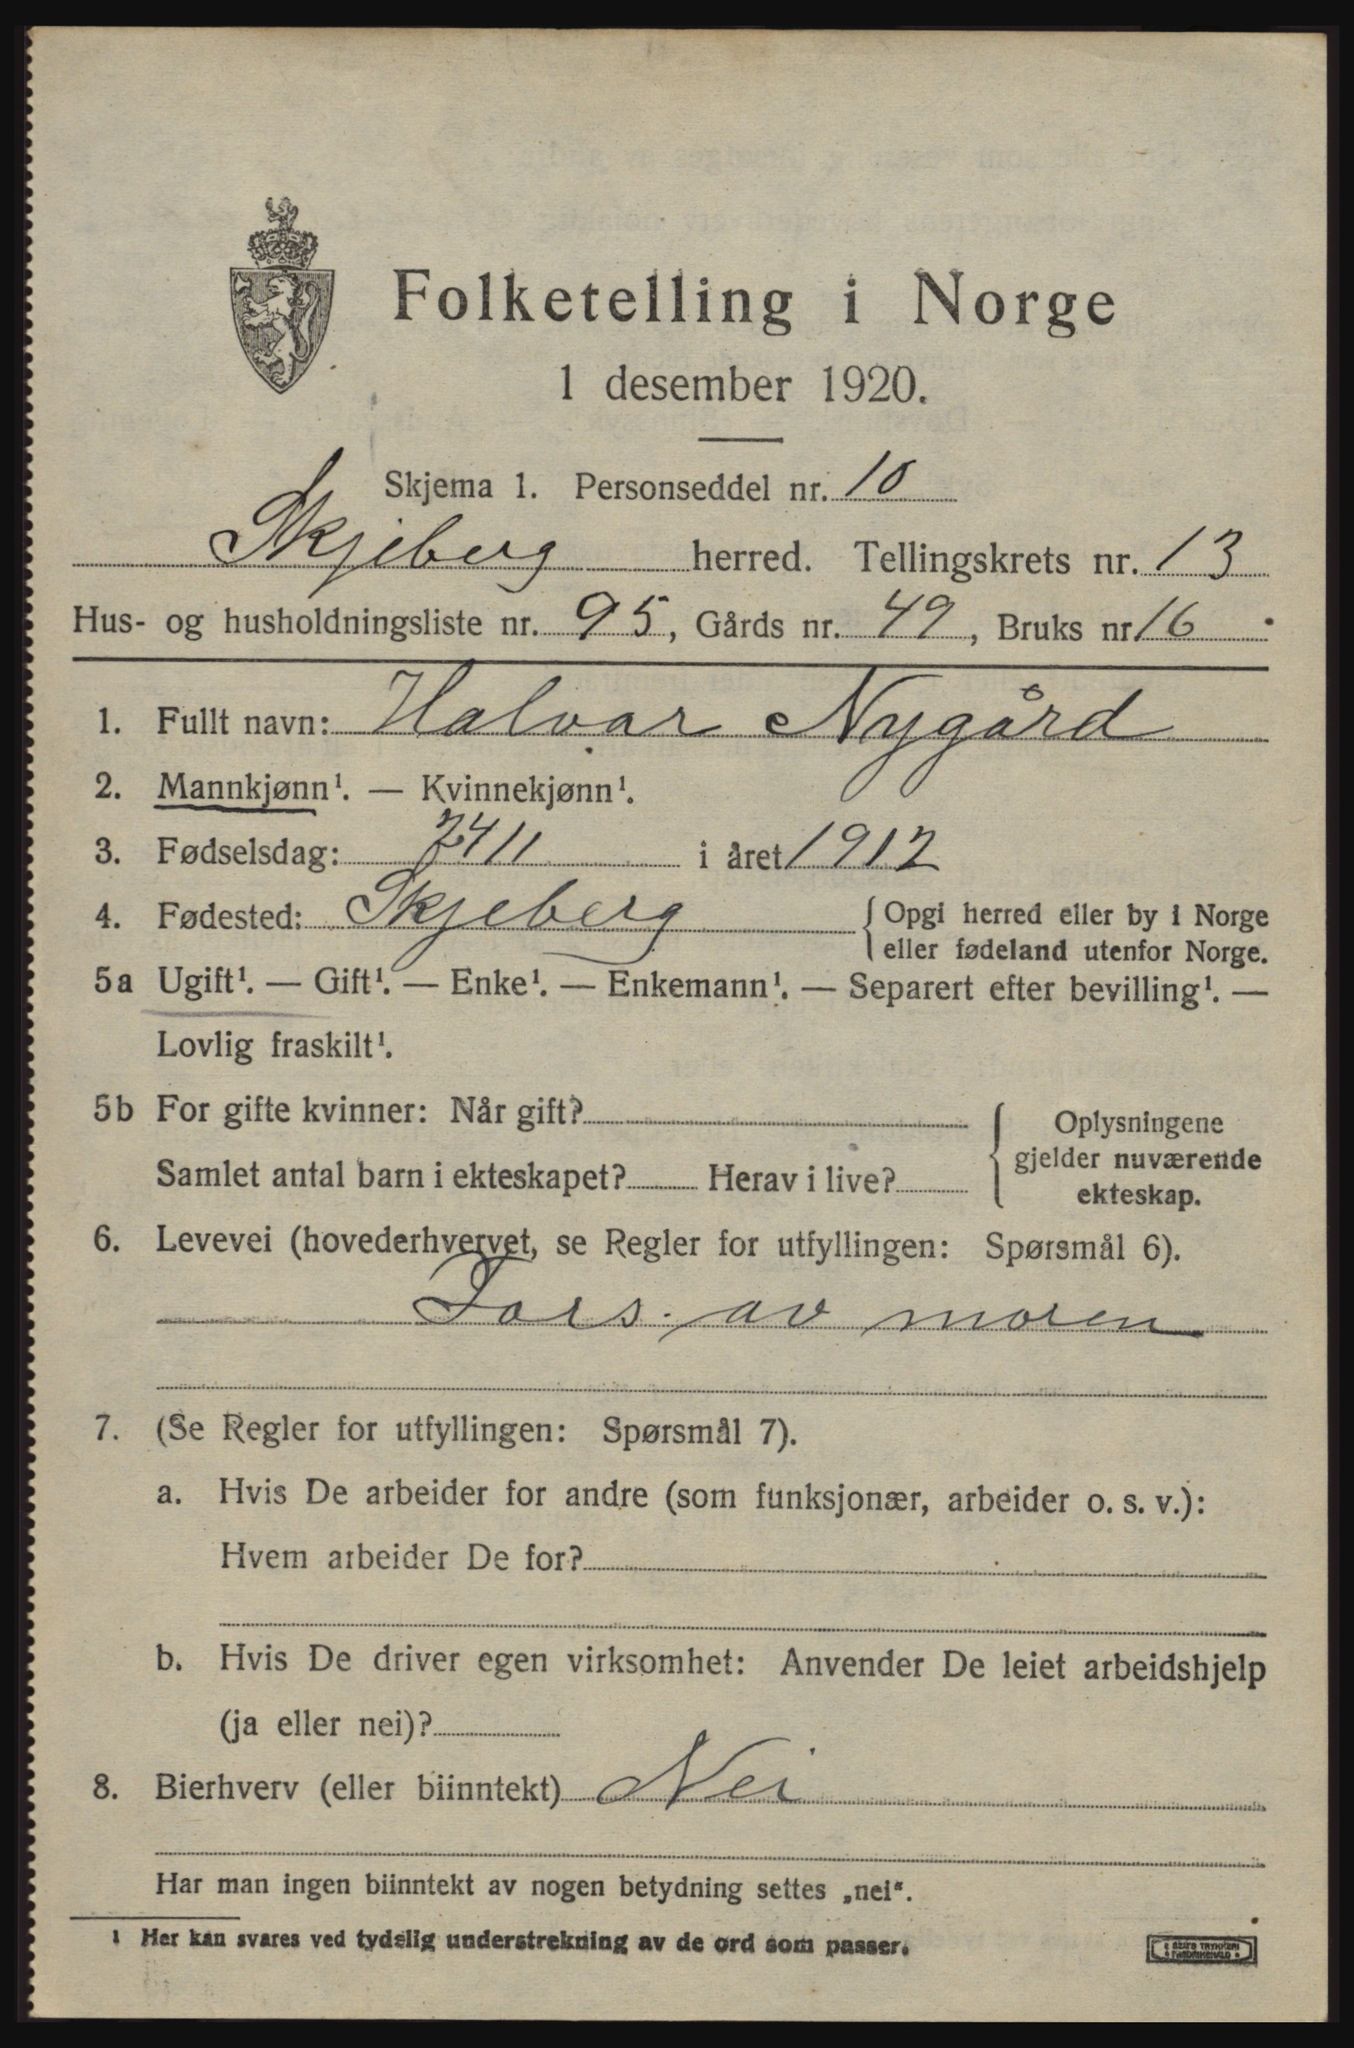 Folketelling i Norge
1 desember 1920.
Skjema 1. Personseddel nr. 10
Skjeberg herred. Tellingskrets nr. 13
Hus- og husholdningsliste nr. 95, Gårds nr. 49, Bruks nr 16
1. Fullt navn: Halvar Nygård
2. Mannkjønn¹. — Kvinnekjønn¹.
3. Fødselsdag: 24 11 i året 1912
4. Fødested: Skjeberg { Opgi herred eller by i Norge
eller fødeland utenfor Norge.
5a Ugift¹. — Gift¹. — Enke¹. — Enkemann¹. — Separert efter bevilling¹. —
Lovlig fraskilt¹.
5b For gifte kvinner: Når gift?
Samlet antal barn i ekteskapet? Herav i live?
{ Oplysningene
gjelder nuværende
ekteskap.
6. Levevei (hovederhvervet, se Regler for utfyllingen: Spørsmål 6).
Fors. av moren
7. (Se Regler for utfyllingen: Spørsmål 7).
a. Hvis De arbeider for andre (som funksjonær, arbeider o. s. v.):
Hvem arbeider De for?
b. Hvis De driver egen virksomhet: Anvender De leiet arbeidshjelp
(ja eller nei)?
8. Bierhverv (eller biinntekt) Nei
Har man ingen biinntekt av nogen betydning settes „nei“.
¹ Her kan svares ved tydelig understrekning av de ord som passer.